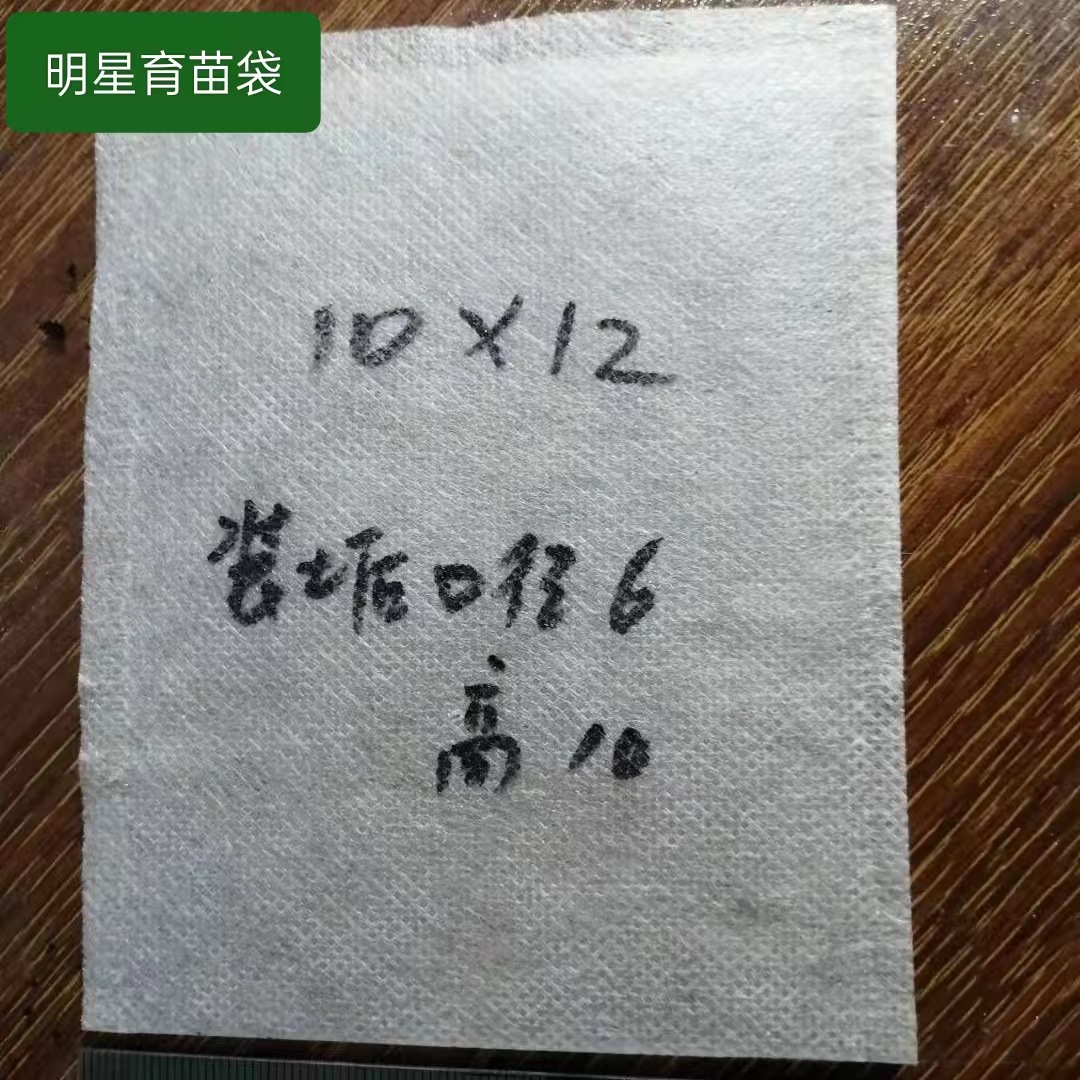 明星育苗袋
10×12
装土后口径6
高10